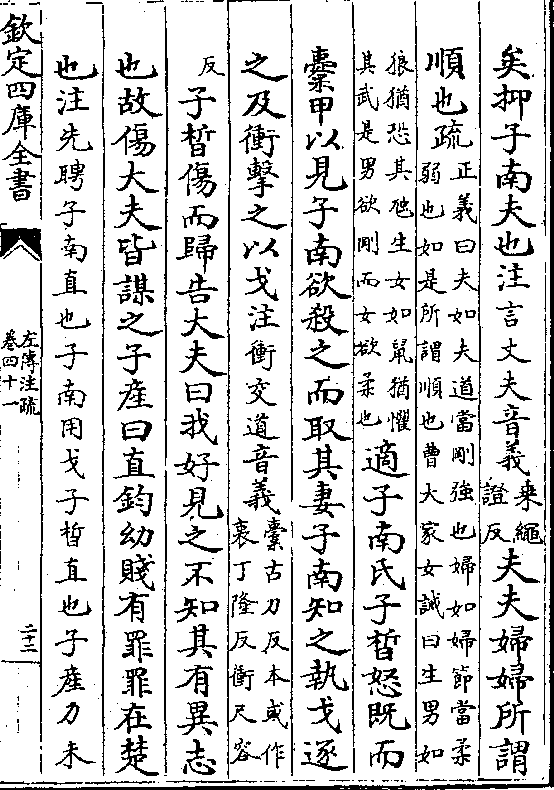 矣抑子南夫也注言丈夫音義乘繩證反夫夫婦婦所謂
順也疏正義曰夫如夫道當剛強也婦如婦節當柔
弱也如是所謂順也曹大家女誡曰生男如
狼猶恐其尫生女如鼠猶懼
其武是男欲剛而女欲柔也適子南氏子晳怒既而
櫜甲以見子南欲殺之而取其妻子南知之執戈逐
之及衝擊之以戈注衝交道音義櫜古刀反本或作
衷丁隆反衝尺容
反子晳傷而歸告大夫曰我好見之不知其有異志
也故傷大夫皆謀之子産曰直鈞幼賤有罪罪在楚
也注先聘子南直也子南用戈子晳直也子産力未
欽定四庫全書
左傳注疏
卷四十一